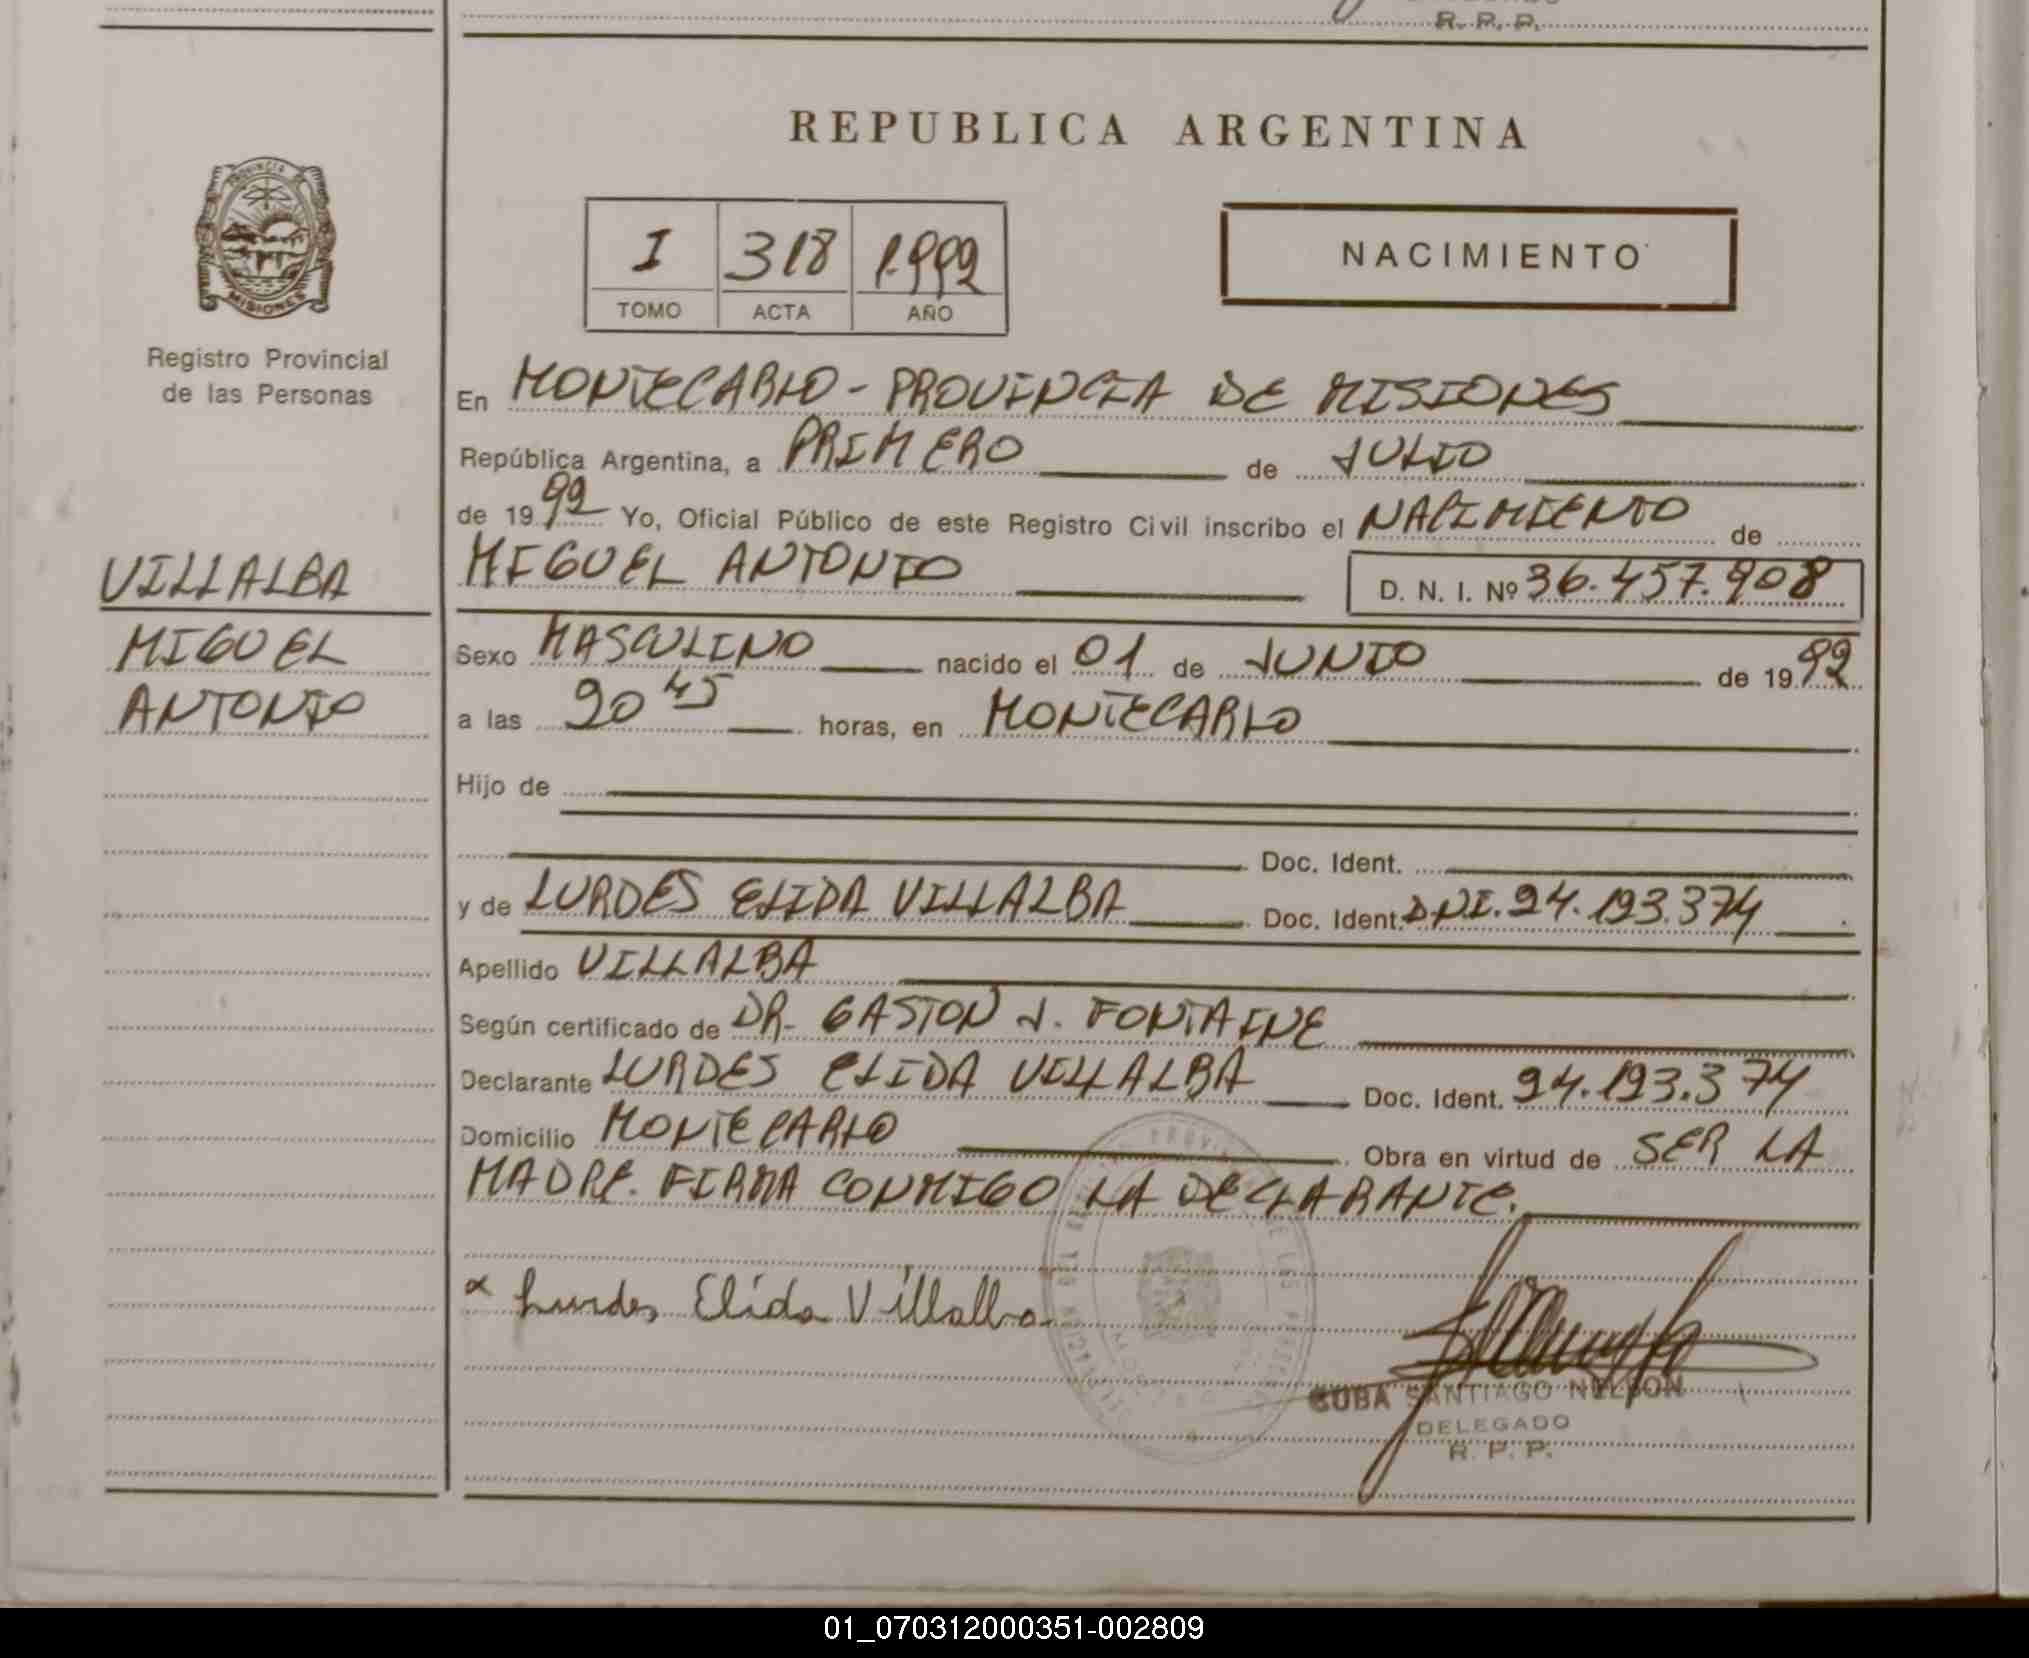 R. P. P.
REPUBLICA ARGENTINA
PROVINCIA DE
MISIONES
I 318 1.992
TOMO ACTA AÑO
NACIMIENTO
Registro Provincial
de las Personas
VILLALBA
MIGUEL
ANTONIO
En MONTECARLO - PROVINCIA DE MISIONES
República Argentina, a PRIMERO de JULIO
de 1992 Yo, Oficial Público de este Registro Civil inscribo el NACIMIENTO de
MIGUEL ANTONIO D. N. I. Nº 36.457.908
Sexo MASCULINO nacido el 01 de JUNIO de 1992
a las 20 45 horas, en MONTECARLO
Hijo de
Doc. Ident.
y de LURDES ELIDA VILLALBA Doc. Ident. DNI. 24.193.374
Apellido VILLALBA
Según certificado de DR. GASTON J. FONTAINE
Declarante LURDES ELIDA VILLALBA Doc. Ident. 24.193.374
Domicilio MONTECARLO Obra en virtud de SER LA
MADRE. FIRMA CONMIGO LA DECLARANTE.
x Lurdes Elida Villalba
CUBA SANTIAGO NELSON
DELEGADO
R. P. P.
01_070312000351-002809